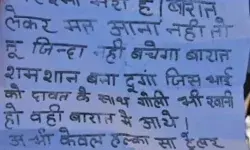 मेरी है। बारात
लेकर मत आना नही तो
तू जिन्दा नही बचेगा बारात
शमशान बना दूंगा जिस भाई
को दावत के साथ गोली भी खानी
हो वही बारात मे आये।
अभी केवल हल्का सा ट्रेलर